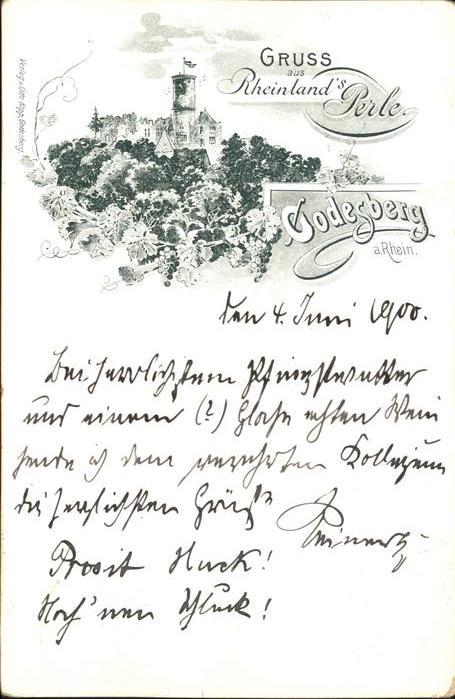 Verlag v. Otto Kopp, Godesberg.
GRUSS
aus
Rheinland's
Perle.
Godesberg
a. Rhein.
den 4. Juni 1900.
Bei herrlichstem Pfingstwetter
und einem (?) Glase echten Wein
sende ich dem verehrten Kollegium
die herzlichsten Grüße
Reinertz
Prosit Huck!
Noch 'nen Schluck!